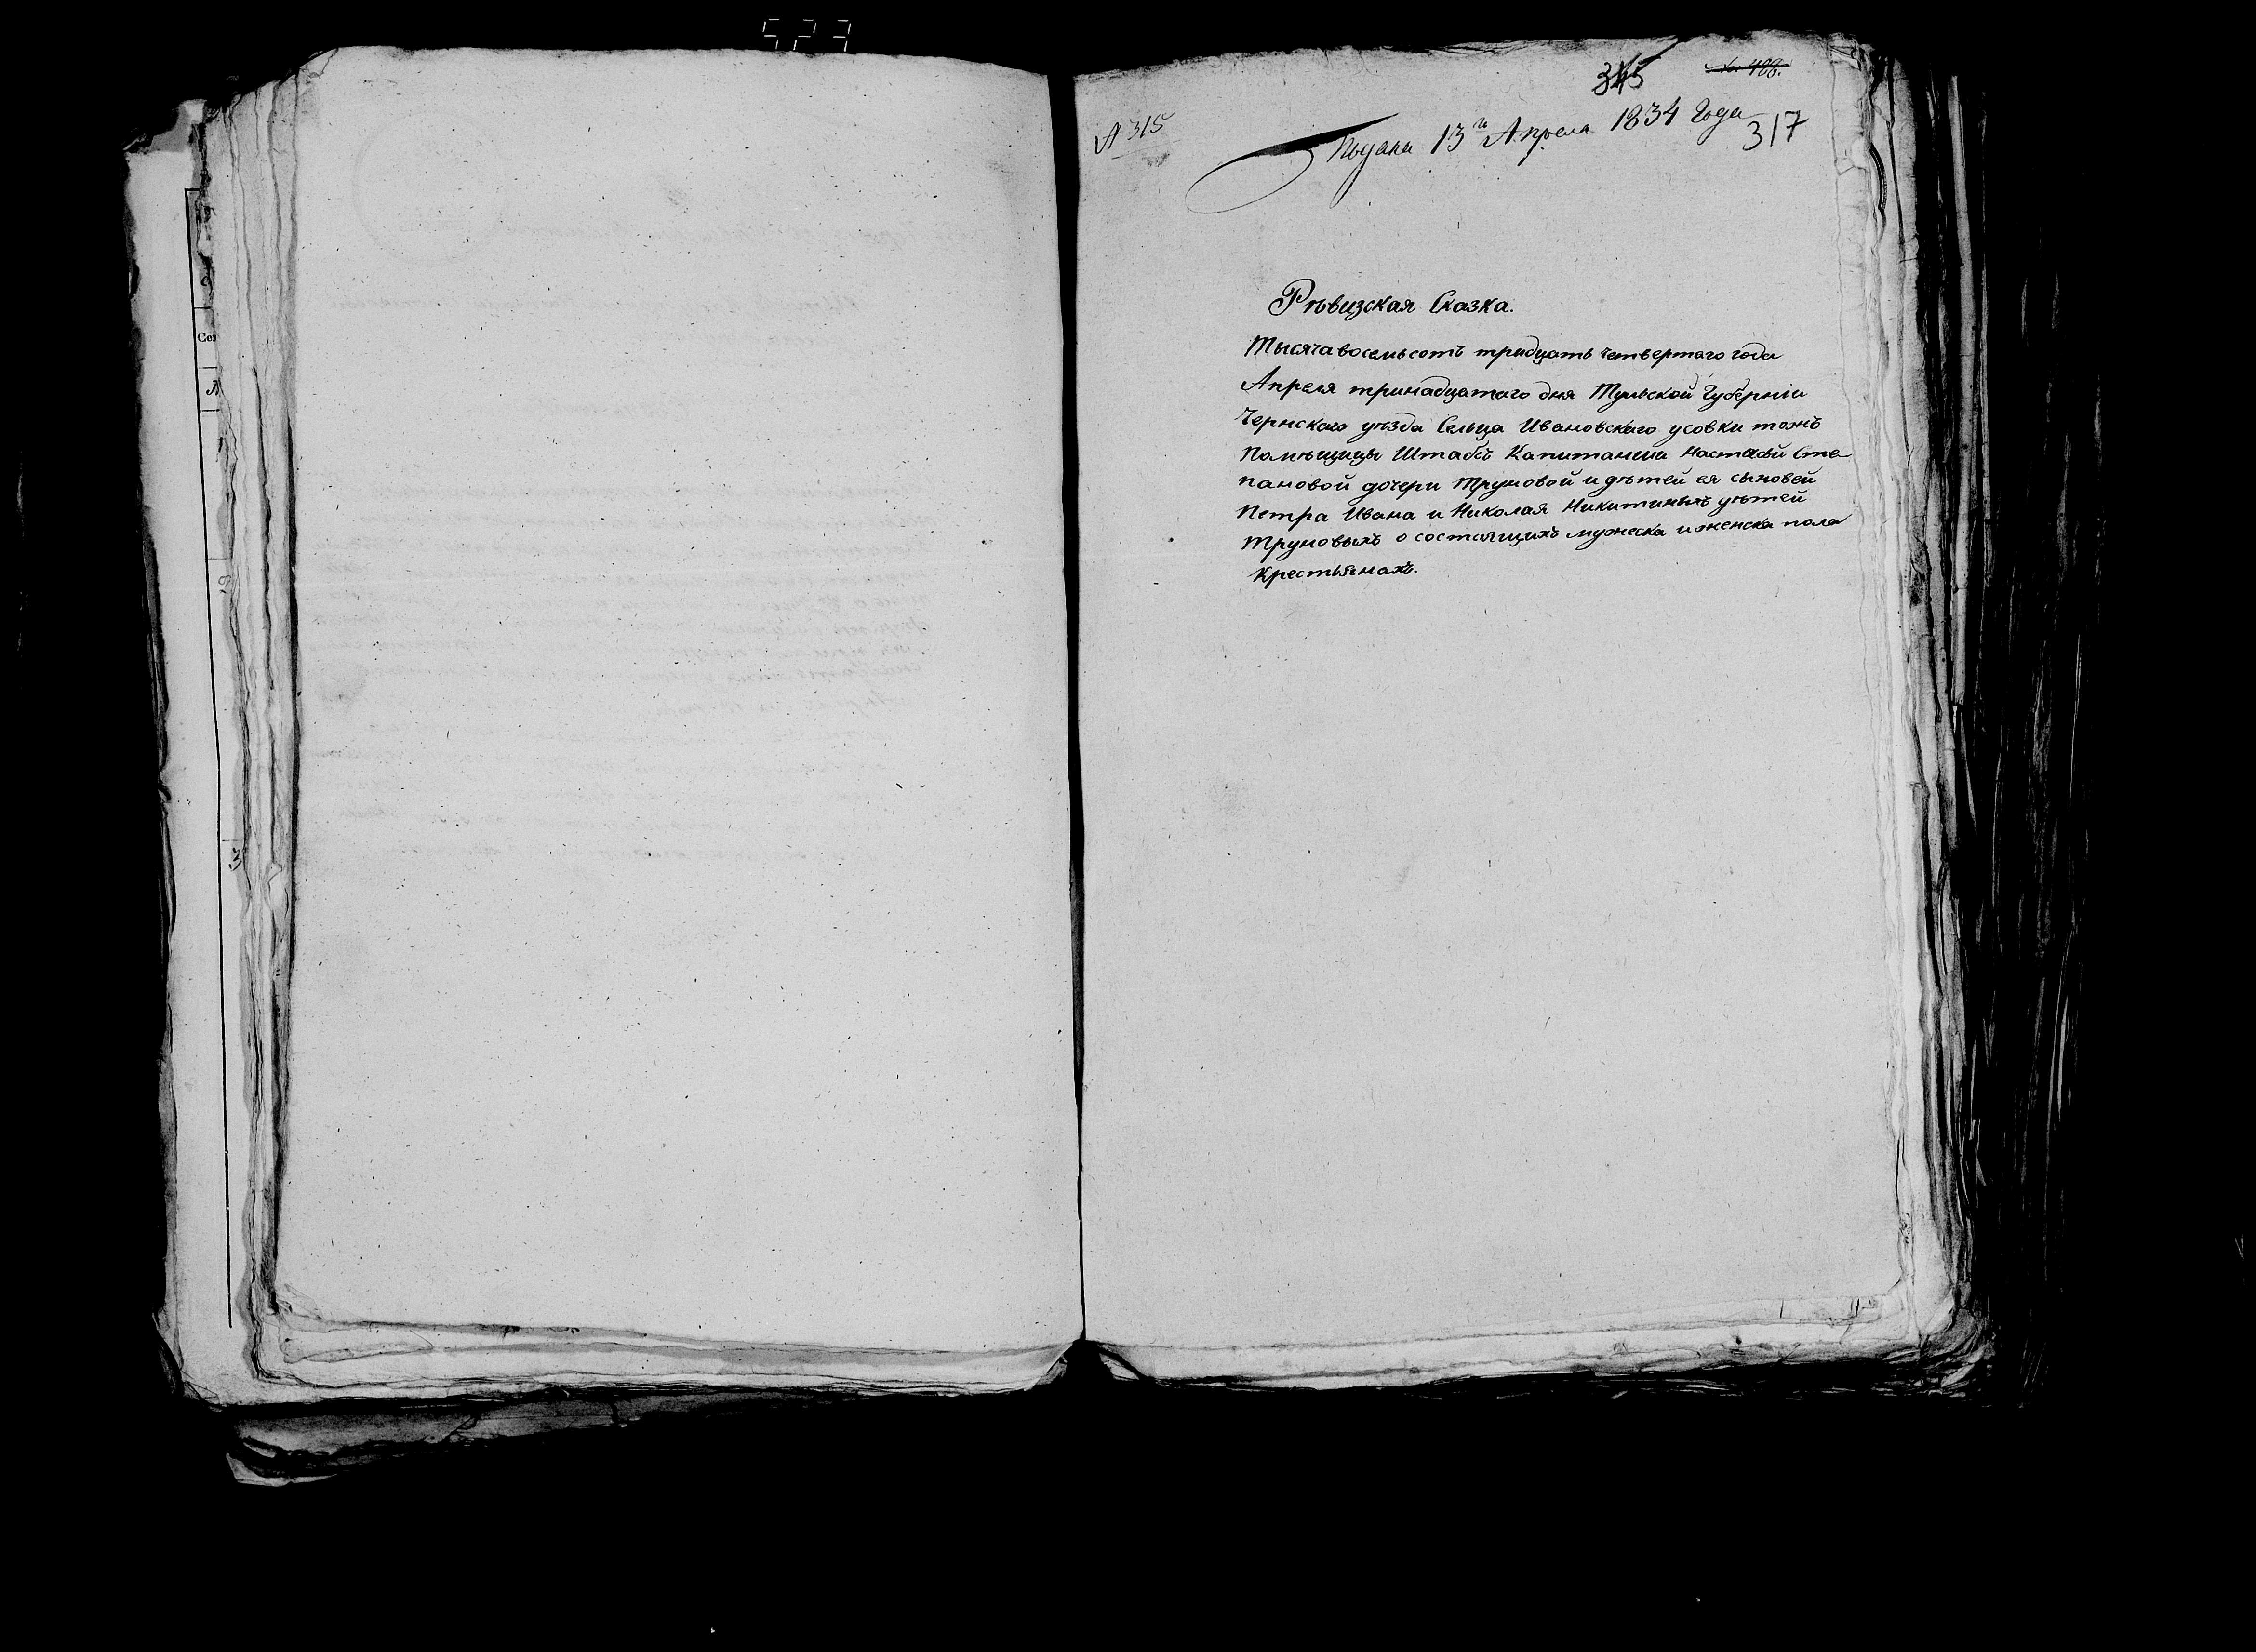 № 315
345
№ 488.
Подана 13го Апреля 1834 Года
317
Рѣвизская Сказка.
Тысяча восемьсотъ тридцать четвертаго года
Апреля тринадцатаго дня Тульской Губерніи
Чернскаго уѣзда Сельца Ивановскаго усовки тожъ
Помѣщицы Штабсъ Капитанши Настасьи Сте
пановой дочери Труновой и дѣтей ея сыновей
Петра Ивана и Николая Никитиныхъ дѣтей
Труновыхъ о состоящихъ мужеска и женска пола
крестьянахъ.